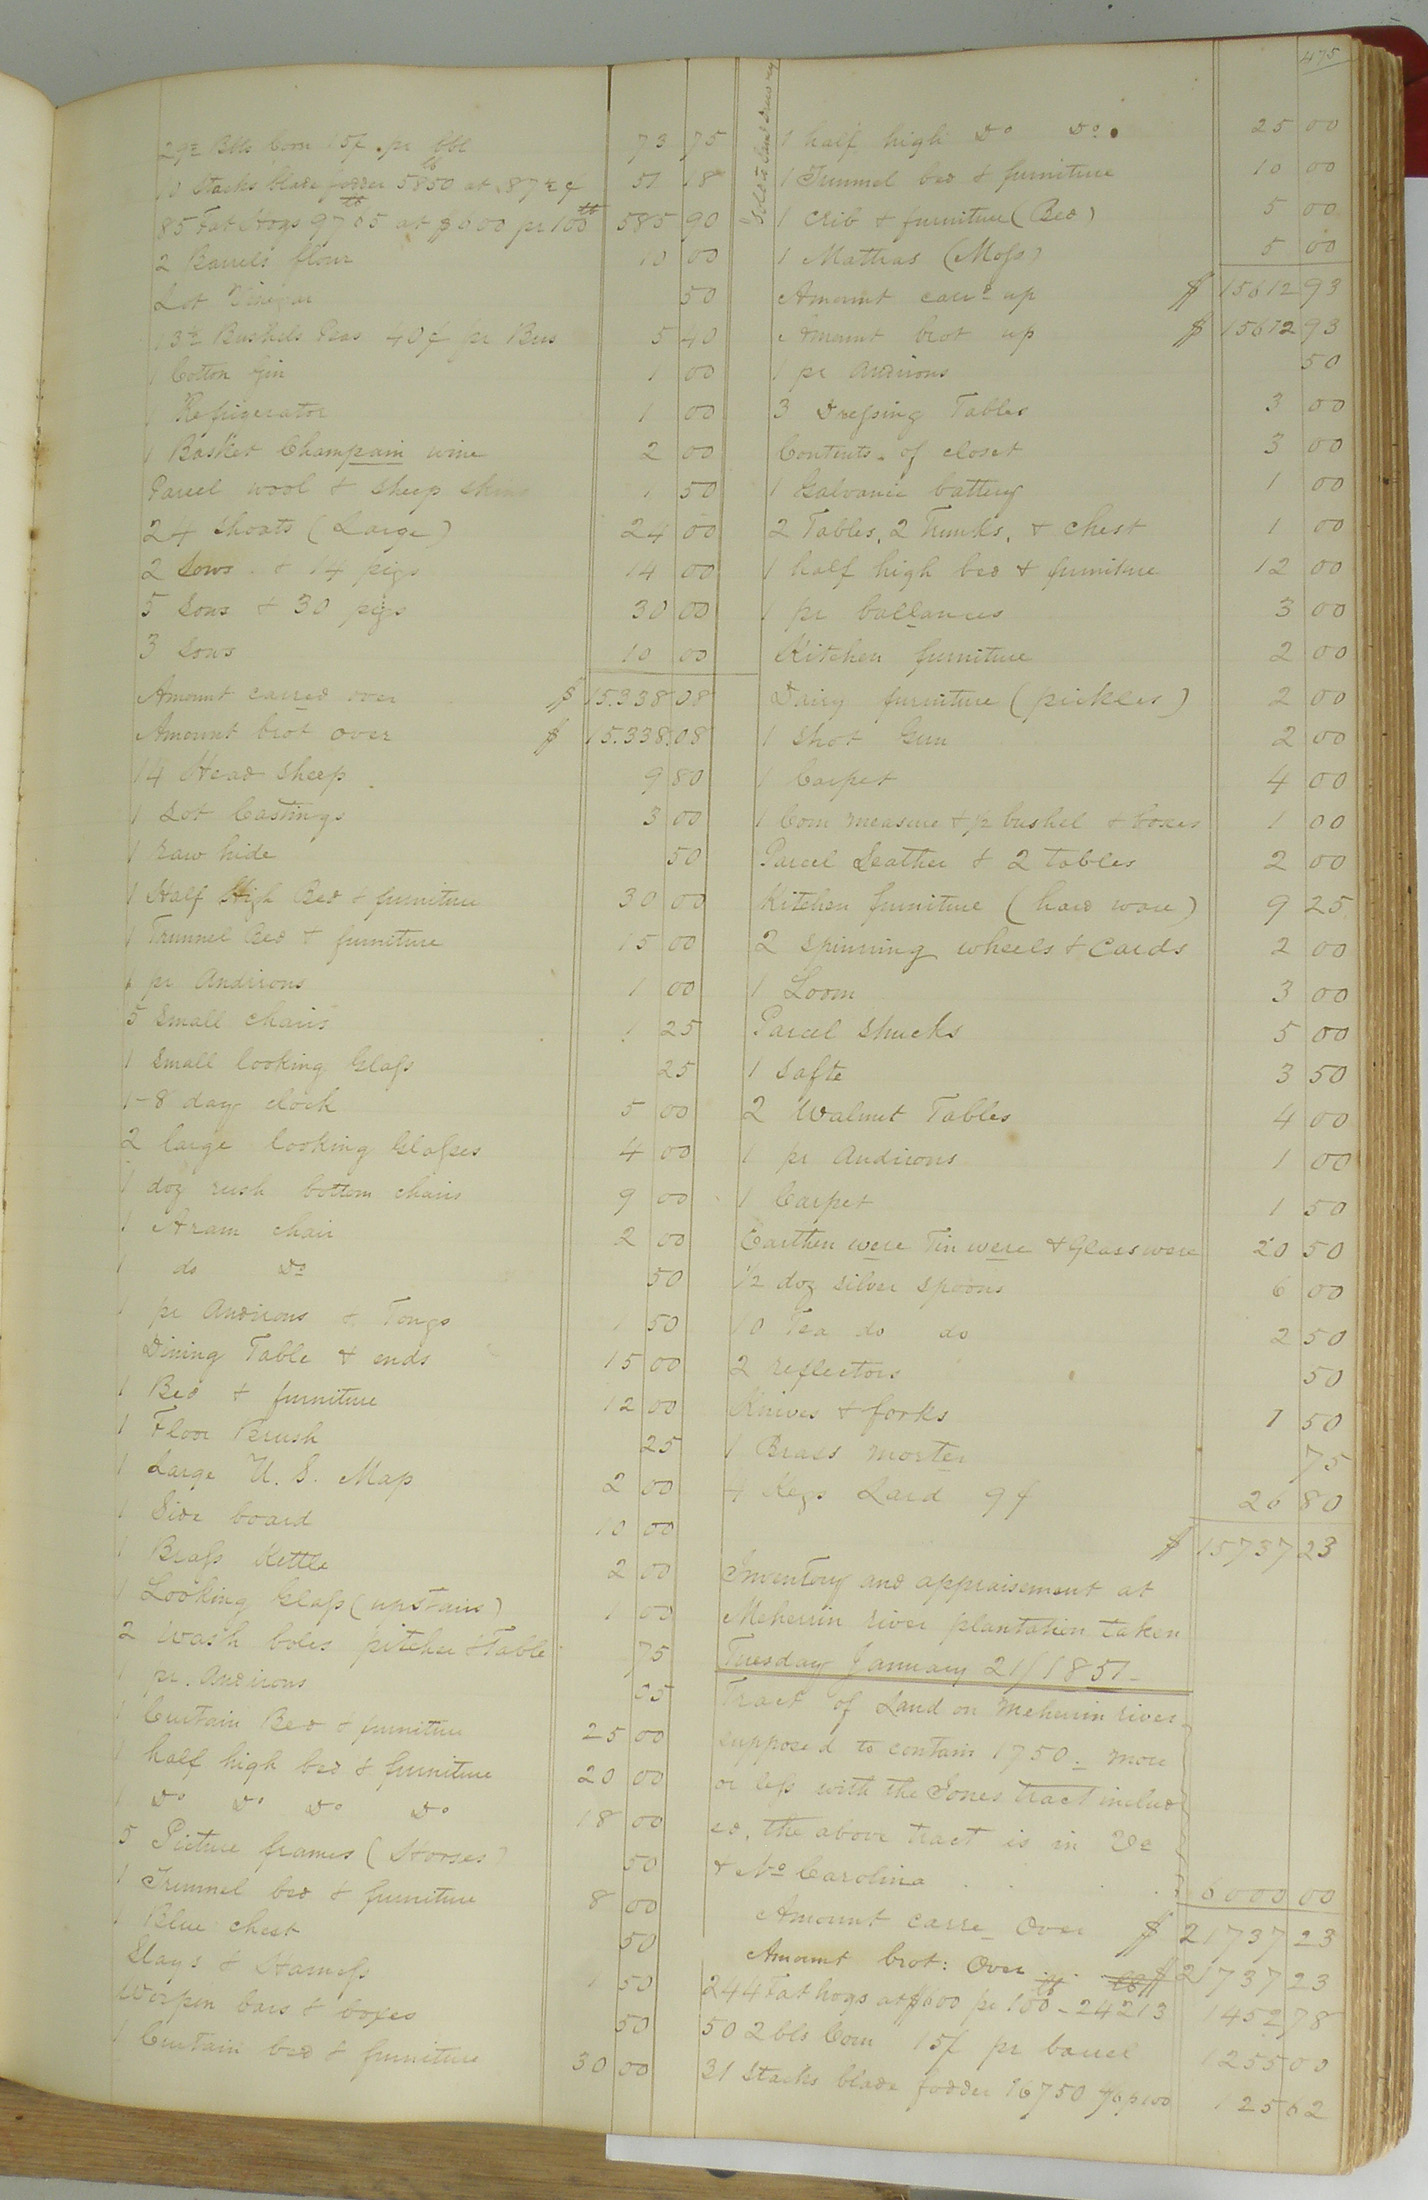 475
29½ Blls Corn 15/ pr bbl 73 75
10 Stacks blade fodder 5850 lb at .87½ ¢ 51 18
85 Fat Hogs 9765 lb at $6 00 pr 100 lb 585 90
2 Barrels flour 10 00
Lot Vinegar 50
13½ Bushels Peas 40¢ pr Bus 5 40
1 Cotton Gin 1 00
1 Refrigerator 1 00
1 Basket Champain wine 2 00
Parcel wool & sheep skins 1 50
24 Shoats (Large) 24 00
2 Sows & 14 pigs 14 00
5 Sows & 30 pigs 30 00
3 Sows 10 00
Amount carred over $ 15.338 08
Amount brot over $ 15.338.08
14 Head sheep 9 80
1 Lot Castings 3 00
1 raw hide 50
1 Half High Bed & furniture 30 00
1 Trunnel Bed & furniture 15 00
1 pr Andirons 1 00
5 small chairs 1 25
1 small looking Glass 25
1-8 day clock 5 00
2 large looking Glasses 4 00
1 doz rush bottom chairs 9 00
1 Aram chair 2 00
1 do Do 50
1 pr Andirons & Tongs 1 50
Dining Table & ends 15 00
1 Bed & furniture 12 00
1 Floor Brush 25
1 Large U. S. Map 2 00
1 Side board 10 00
1 Brass Kettle 2 00
1 Looking Glass (upstairs) 1 00
2 Wash boles pitcher & Table 75
1 pr. Andirons
1 Curtain Bed & furniture 25 00
1 half high bed & furniture 20 00
1 Do Do Do Do 18 00
5 Picture frames (Horses) 50
1 Trunnel bed & furniture 8 00
1 Blue chest 50
Slays & Harness 1 50
Worpen bars & boxes 50
1 Curtain bed & furniture 30 00
1 half high Do Do. 25 00
1 Trunnel bed & furniture 10 00
1 Crib & furniture (Bed) 5 00
1 Mattras (Moss) 5 00
Amount card up $ 15612 93
Amount brot up $ 15612 93
1 pr Andirons 50
3 Dressing Tables 3 00
Contents of closet 3 00
1 Galvanic battery 1 00
2 Tables, 2 Trunks, & chest 1 00
1 half high bed & furniture 12 00
1 pr ballances 3 00
Kitchen furniture 2 00
Dairy furniture (pickles) 2 00
1 Shot Gun 2 00
1 Carpet 4 00
1 Corn measure & p bushel & boxes 1 00
Parcel Leather & 2 tables 2 00
Kitchen furniture (hard ware) 9 25
2 Spinning wheels & Cards 2 00
1 Loom 3 00
Parcel Shucks 5 00
1 Safte 3 50
2 Walnut Tables 4 00
1 pr Andirons 1 00
1 Carpet 1 50
Earthen were Tin were & Glass were 20 50
½ doz silver spoons 6 00
10 Tea do do 2 50
2 reflectors 50
Knives & forks 1 50
1 Brass morter 75
4 Kegs Lard 9¢ 26 80
$ 15737 23
Inventory and appraisement at
Meherrin river plantation taken
Tuesday January 21/1851
Tract of Land on Meherrin river
supposed to contain 1750. more
or less with the Jones tract includ
ed, the above tract is in Va
& No Carolina 6000 00
Amount carre Over $ 21737 23
Amount brot: Over $ 21737 23
244 Fat hogs at $6 00 pr 100 lb - 24213 1452 78
502 bls Corn 15/ pr barrel 1255 00
31 Stacks blade fodder 16750 125 62